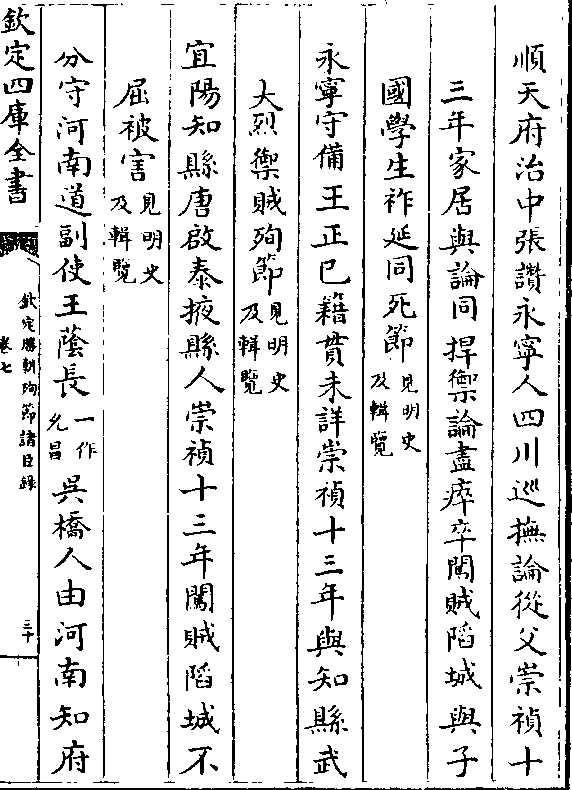 順天府治中張讚永寧人四川巡撫論從父崇禎十
三年家居與論同捍禦論盡瘁卒闖賊陷城與子
國學生祚延同死節見明史及輯覽
永寧守備王正已籍貫未詳崇禎十三年與知縣武
大烈禦賊殉節見明史及輯覽
宜陽知縣唐啟泰掖縣人崇禎十三年闖賊陷城不
屈被害見明史及輯覽
分守河南道副使王蔭長一作允昌吳橋人由河南知府
欽定四庫全書
欽定勝朝殉節諸臣錄
卷七
三十